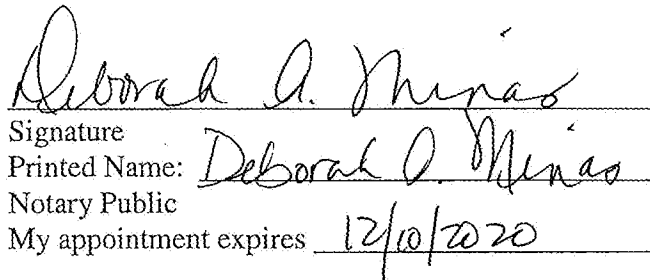 Deborah A. Minas
Signature
Printed Name: Deborah A. Minas
Notary Public
My appointment expires 12/10/2020